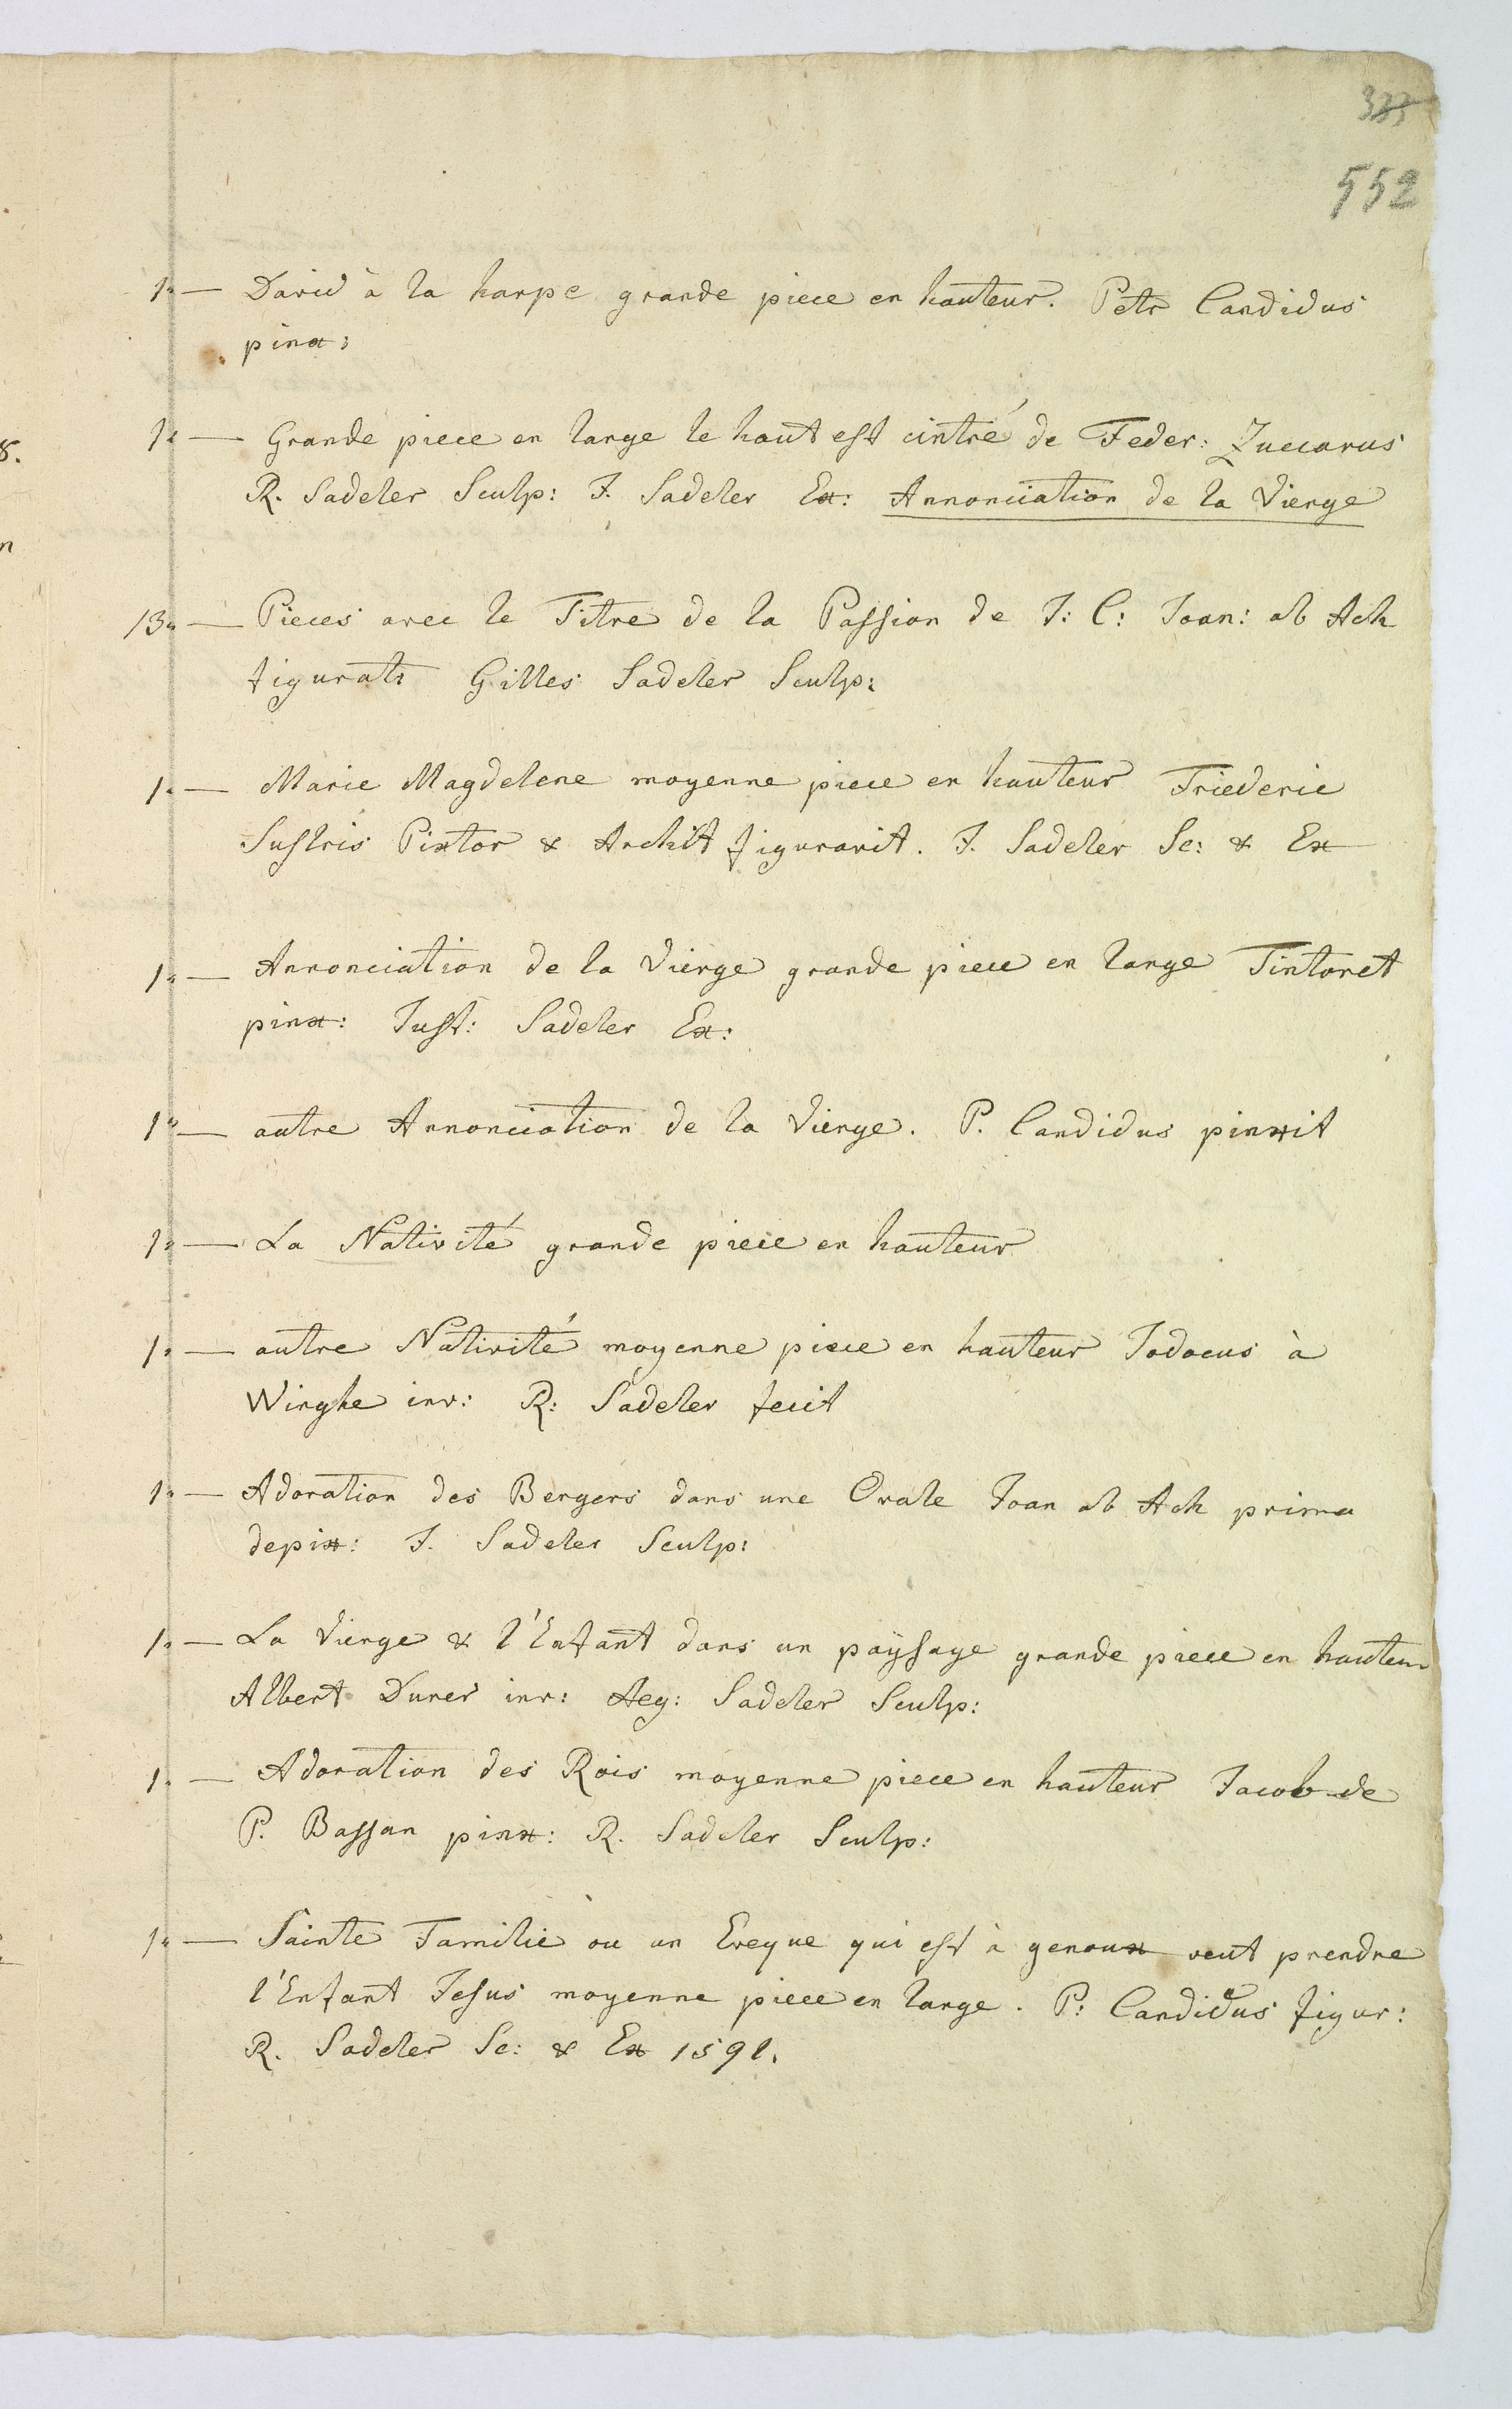 552
1„ — David à la harpe grande piece en hauteur. Petr Candidus
pinx:
1„ — Grande piece en large le haut est cintré de Feder: Zuccarus
R. Sadeler Sculp: J. Sadeler Ex: Annonciation de la Vierge
13„ — Pieces avec le Titre de la Passion de J: C: Joan: ab Ach
figurati Gilles Sadeler Sculp:
1„ — Marie Magdelene moyenne piece en hauteur Friederic
Sustris Pixtor & Archit figuravit. J. Sadeler Sc: & Ex
1„ — Annonciation de la Vierge grande piece en large Tintoret
pinx: Just: Sadeler Ex:
1„ — autre Annonciation de la Vierge. P. Candidus pinxit
1„ — La Nativité grande piece en hauteur
1„ — autre Nativité moyenne piece en hauteur Jodocus à
Winghe inv: R: Sadeler fecit
1„ — Adoration des Bergers dans une Ovale Joan ab Ach prima
depix: J. Sadeler Sculp:
1„ — La Vierge & l'Enfant dans un paÿsage grande piece en hauteur
Albert Durer inv: Aeg: Sadeler Sculp:
1„ — Adoration des Rois moyenne piece en hauteur Jacob de
P. Bassan pinx: R. Sadeler Sculp:
1„ — Sainte Familie ou un Eveque qui est à genoux veut prendre
l'Enfant Jesus moyenne piece en large. P: Candidus figur:
R. Sadeler Sc: & Ex 1591.